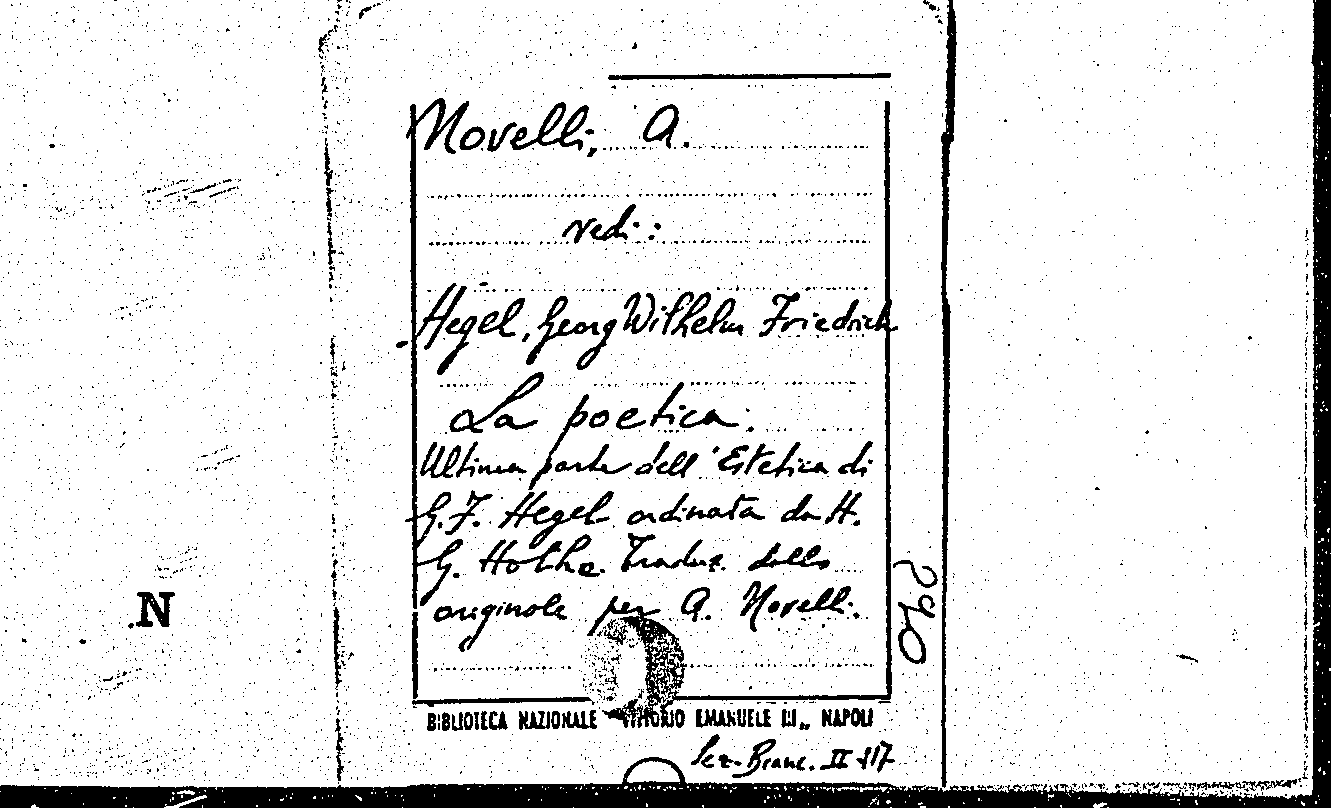 Novelli, A.
vedi:
Hegel, Georg Wilhelm Friedrich
La poetica.
Ultima parte dell'Estetica di
G.F. Hegel ordinata da H.
G. Hothe. Traduz. dallo
originale per A. Novelli.
N
290
BIBLIOTECA NAZIONALE "VITTORIO EMANUELE III" NAPOLI
Sez. Branc. II